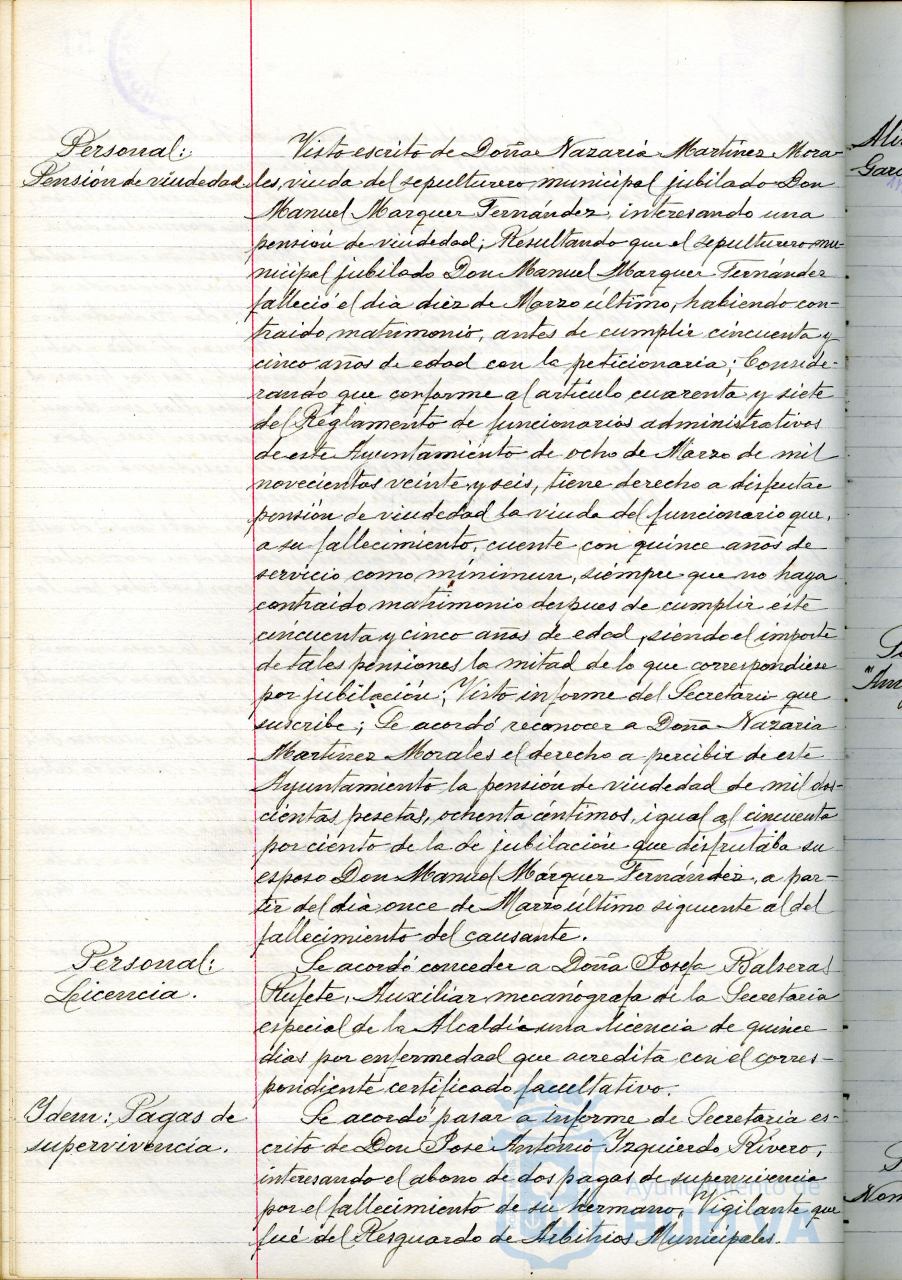 Personal:
Pensión de viudedad
Visto escrito de Doña Nazaria Martínez Mora-
les, viuda del sepulturero municipal jubilado Don
Manuel Marquez Fernández, interesando una
pensión de viudedad; Resultando que el sepulturero mu-
nicipal jubilado Don Manuel Marquez Fernández
falleció el dia diez de Marzo último, habiendo con-
traido matrimonio, antes de cumplir cincuenta y
cinco años de edad con la peticionaria; Conside-
rando que conforme al artículo cuarenta y siete
del Reglamento de funcionarios administrativos
de este Ayuntamiento de ocho de Marzo de mil
novecientos veinte y seis, tiene derecho a disfrutar
pensión de viudedad la viuda del funcionario que,
a su fallecimiento, cuente con quince años de
servicio como mínimun, siempre que no haya
contraido matrimonio despues de cumplir este
cincuenta y cinco años de edad, siendo el importe
de tales pensiones la mitad de lo que correspondiese
por jubilación; Visto informe del Secretario que
suscribe; Se acordó reconocer a Doña Nazaria
Martínez Morales el derecho a percibir de este
Ayuntamiento la pensión de viudedad de mil dos-
cientas pesetas, ochenta céntimos, igual al cincuenta
por ciento de la de jubilación que disfrutaba su
esposo Don Manuel Márquez Fernández, a par-
tir del dia once de Marzo último siguiente al del
fallecimiento del causante.
Personal:
Licencia.
Se acordó conceder a Doña Josefa Balseras
Rufete, Auxiliar mecanógrafa de la Secretaria
especial de la Alcaldía una licencia de quince
dias por enfermedad que acredita con el corres-
pondiente certificado facultativo.
Idem: Pagas de
supervivencia.
Se acordó pasar a informe de Secretaria es-
crito de Don Jose Antonio Izquierdo Rivero,
interesando el abono de dos pagas de supervivencia
por el fallecimiento de su hermano, Vigilante que
fué del Resguardo de Arbitrios Municipales.
Ayuntamiento de
HUELVA